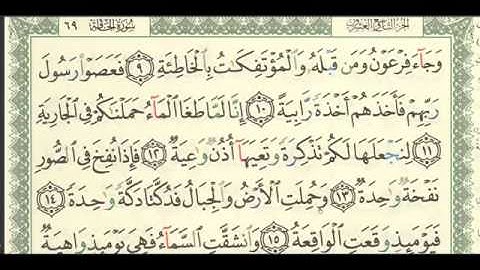 الجزء التاسع والعشرون سورة الحاقة ٦٩
وَجَآءَ فِرْعَوْنُ وَمَن قَبْلَهُۥ وَٱلْمُؤْتَفِكَٰتُ بِٱلْخَاطِئَةِ ٩ فَعَصَوْا۟ رَسُولَ
رَبِّهِمْ فَأَخَذَهُمْ أَخْذَةً رَّابِيَةً ١٠ إِنَّا لَمَّا طَغَا ٱلْمَآءُ حَمَلْنَٰكُمْ فِى ٱلْجَارِيَةِ
١١ لِنَجْعَلَهَا لَكُمْ تَذْكِرَةً وَتَعِيَهَآ أُذُنٌ وَٰعِيَةٌ ١٢ فَإِذَا نُفِخَ فِى ٱلصُّورِ
نَفْخَةٌ وَٰحِدَةٌ ١٣ وَحُمِلَتِ ٱلْأَرْضُ وَٱلْجِبَالُ فَدُكَّتَا دَكَّةً وَٰحِدَةً ١٤
فَيَوْمَئِذٍ وَقَعَتِ ٱلْوَاقِعَةُ ١٥ وَٱنشَقَّتِ ٱلسَّمَآءُ فَهِىَ يَوْمَئِذٍ وَاهِيَةٌ